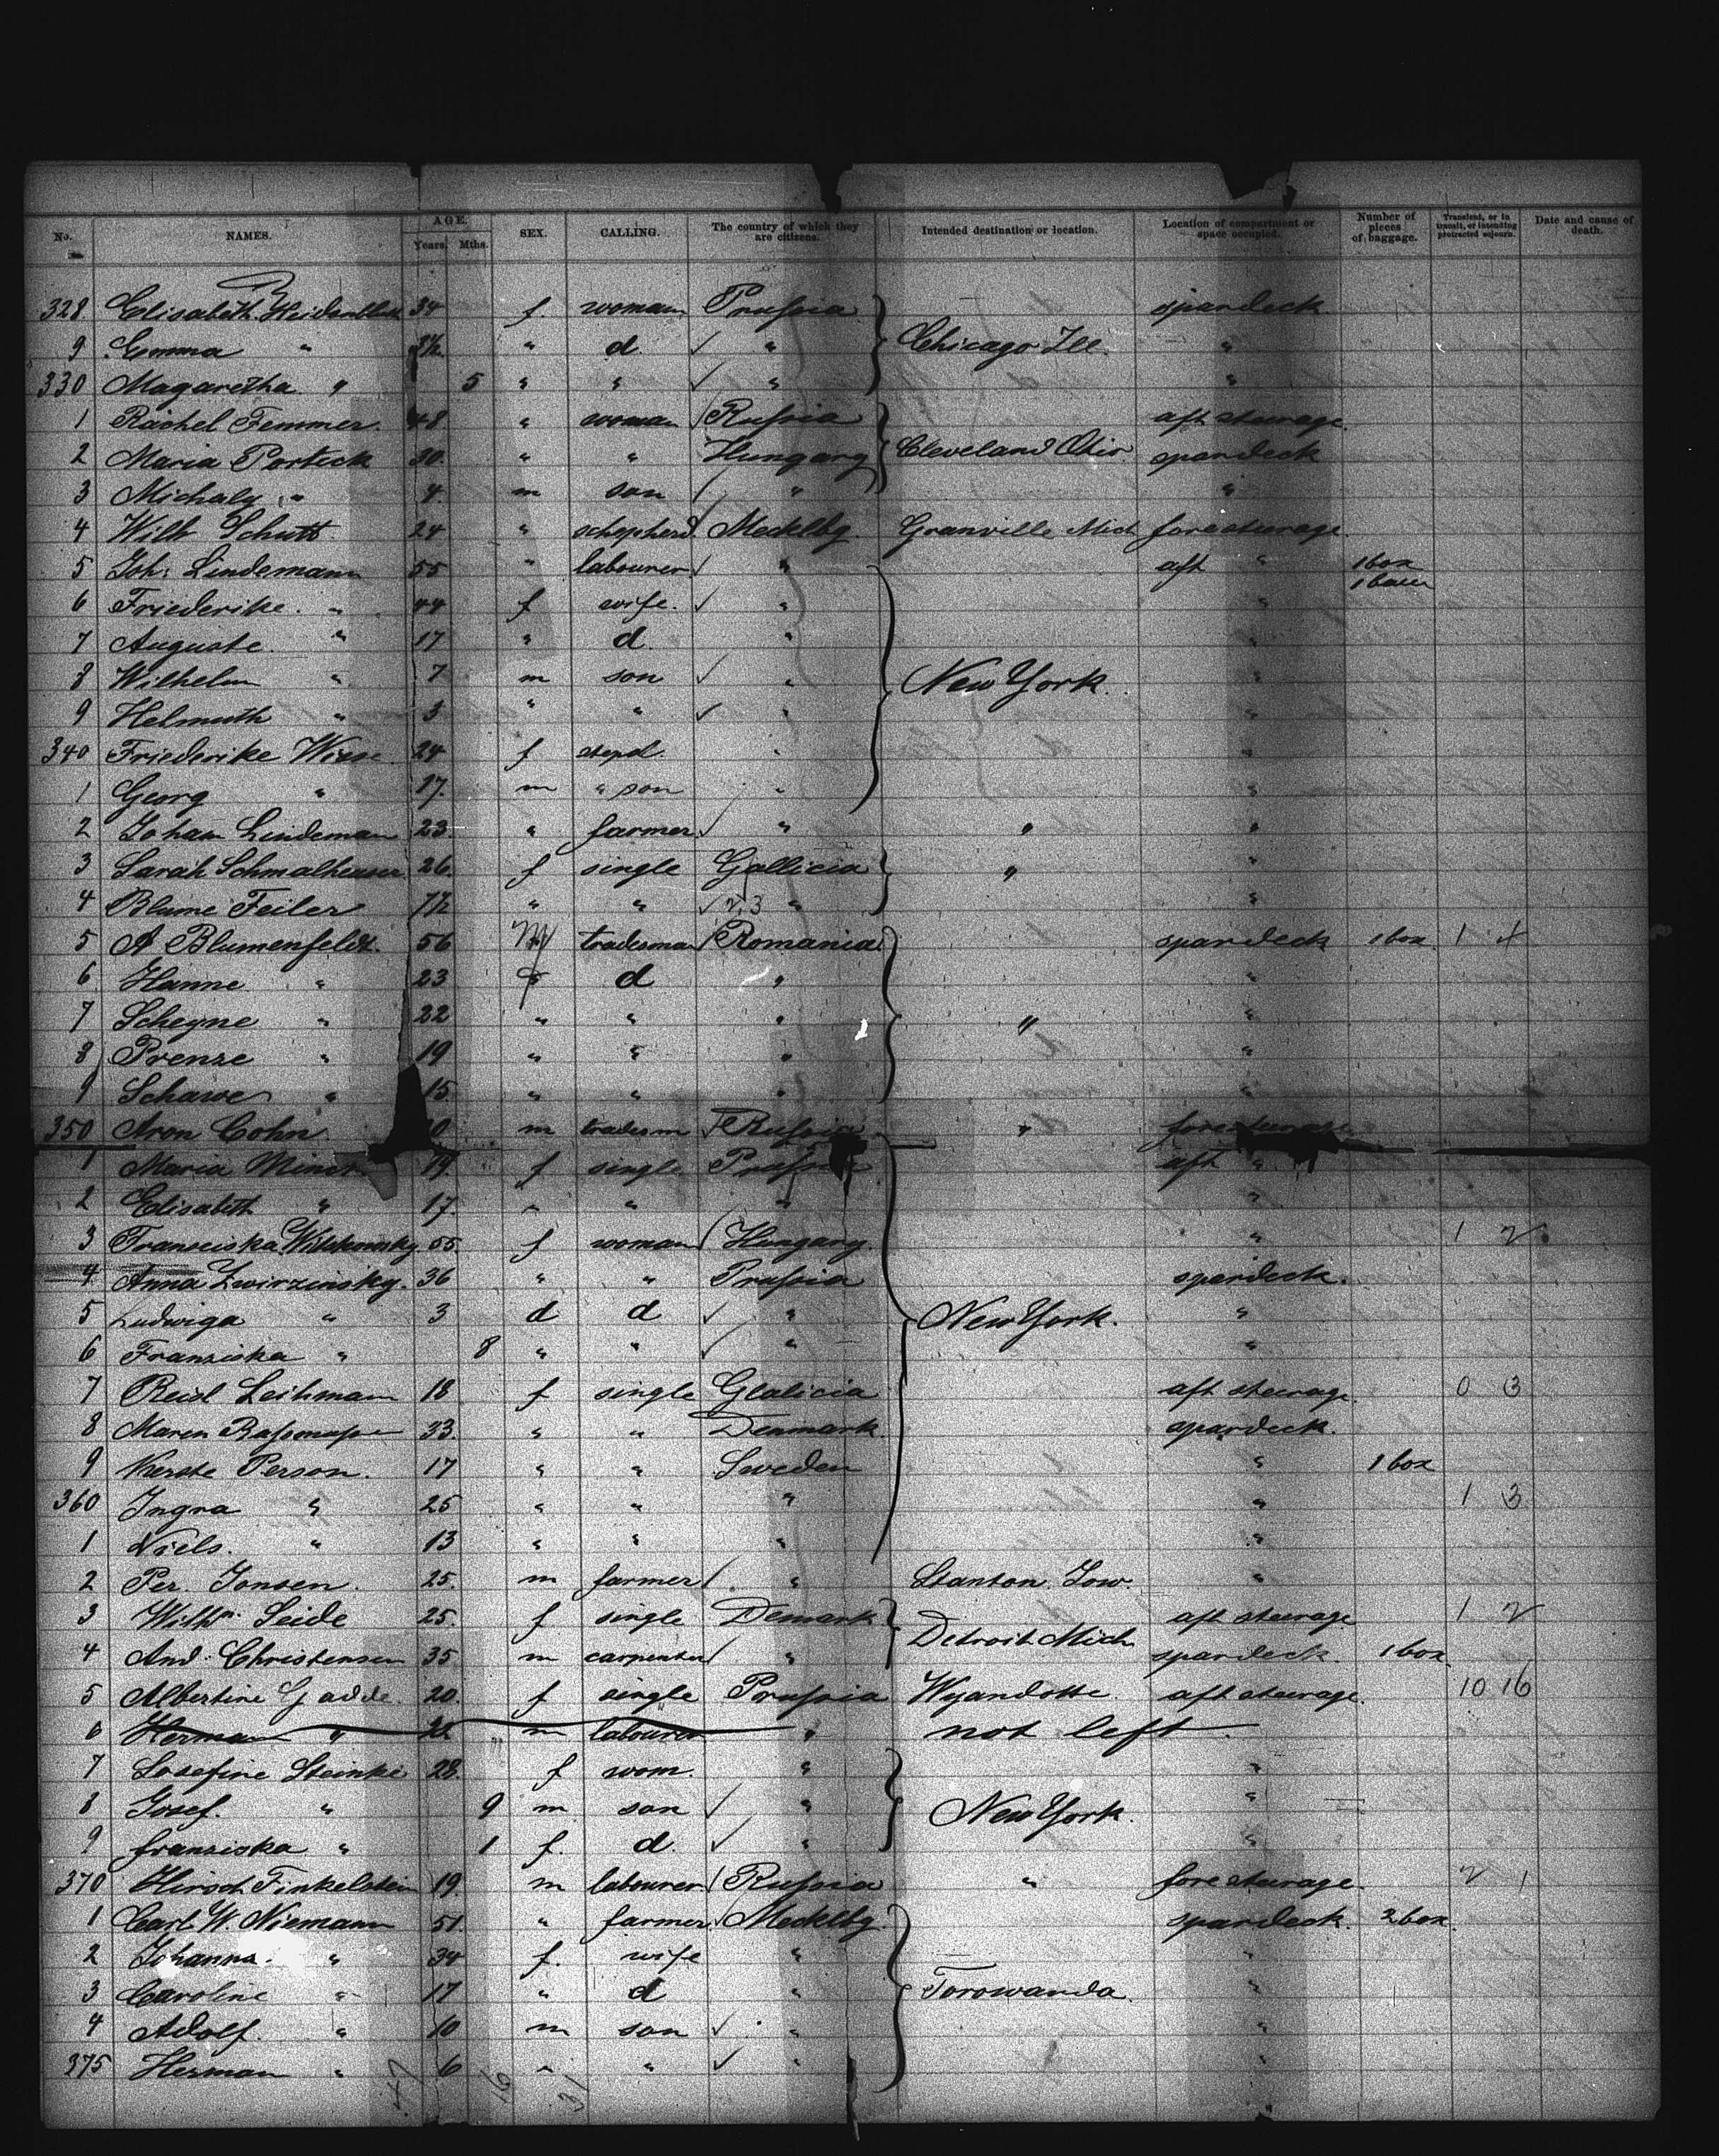 No. NAMES. AGE. Years. Mths. SEX. CALLING. The country of which they are citizens. Intended destination or location. Location of compartment or space occupied. Number of pieces of baggage. Transient, or in transit, or intending protracted sojourn. Date and cause of death.
328 Elisabeth 34 f. woman Prussia spardeck
9 Emma " " d. " Chicago Ill. "
330 Magaretha " 5 " " " "
1 Rachel Femmer. 48 " woman Russia aft steerage.
2 Maria Porteck 30. " " Hungary Cleveland Ohio spardeck
3 Michaly " 4. m son " "
4 Wilh Schutt 24 " schepherd Mecklbg. Granville Mich foresteerage.
5 Joh: Lindemann 55 " labourer " aft " 1 box
6 Friederike. " 44 f wife. " "
7 Auguste. " 17 " d. " "
8 Wilhelm " 7 m son " New York. "
9 Helmuth " 3 " " " "
340 Friederike Wiese. 24 f stepd. " "
1 Georg " 17. m " son " "
2 Joham Lindeman 23. " farmer. " " "
3 Sarah 26. f single Gallicia " "
4 Blume Feiler " " " "
5 A Blumenfeldt. 56 M tradesman Romania spardeck 1 box 1 4
6 Hanne " 23 f d " "
7 Scheyne " 22 " " " " "
8 Prenze " 19 " " " "
9 " 15. " " " "
350 Aron Cohn m tradesm Russia " foresteerage
1 Maria 19. f single Prussia aft "
2 Elisabeth " 17. " " " "
3 Franciska 55. f woman Hungary. " 1 2
4 Anna Zwirzinsky. 36 " " Prussia spardeck.
5 Ludwiga " 3 d d " New York. "
6 Franziska " 8 " " " "
7 Reisl Leihmann 18 f. single Glalicia aft steerage. 0 3
8 Maren 33. " " Denmark. spardeck.
9 Kerste Person. 17 " " Sweden " 1 box
360 Ingra " 25 " " " " 1 3
1 Niels. " 13 " " " "
2 Per. Jonsen. 25. m farmer " Stanton Iow. "
3 Wilhm. Seide 25. f single Demark aft steerage 1 2
4 And. Christensen 35. m carpenter " Detroit Mich spardeck. 1 box.
5 Albertine Gadde. 20. f single Prussia Wyandotte. aft steerage. 10 16
6 Herman " m labourer " not left.
7 Josefine Steinke 28. f wom. " "
8 Josef. " 9 m son " New York. "
9 franziska " 1 f. d. " "
370 Hirsch Finkelstein 19. m labourer Russia " fore steerage. 2 1
1 Carl W. Niemann 51. " farmer. Mecklbg. spardeck. 2 box.
2 Johanna. " 34 f. wife " "
3 Caroline " 17 " d " Torowanda. "
4 Adolf. " 10 m son " "
375 Herman " 6 " " " "